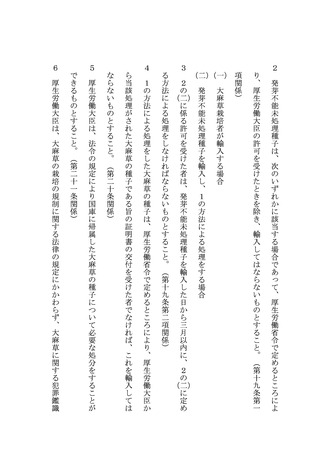 ２　発芽不能未処理種子は、次のいずれかに該当する場合であって、厚生労働省令で定めるところによ
り、厚生労働大臣の許可を受けたときを除き、輸入してはならないものとすること。（第十九条第一
項関係）
㈠　大麻草栽培者が輸入する場合
㈡　発芽不能未処理種子を輸入し、１の方法による処理をする場合
３　２の㈡に係る許可を受けた者は、発芽不能未処理種子を輸入した日から三月以内に、２の㈡に定め
る方法による処理をしなければならないものとすること。（第十九条第二項関係）
４　１の方法による処理をした大麻草の種子は、厚生労働省令で定めるところにより、厚生労働大臣か
ら当該処理がされた大麻草の種子である旨の証明書の交付を受けた者でなければ、これを輸入しては
ならないものとすること。（第二十条関係）
５　厚生労働大臣は、法令の規定により国庫に帰属した大麻草の種子について必要な処分をすることが
できるものとすること。（第二十一条関係）
６　厚生労働大臣は、大麻草の栽培の規制に関する法律の規定にかかわらず、大麻草に関する犯罪鑑識